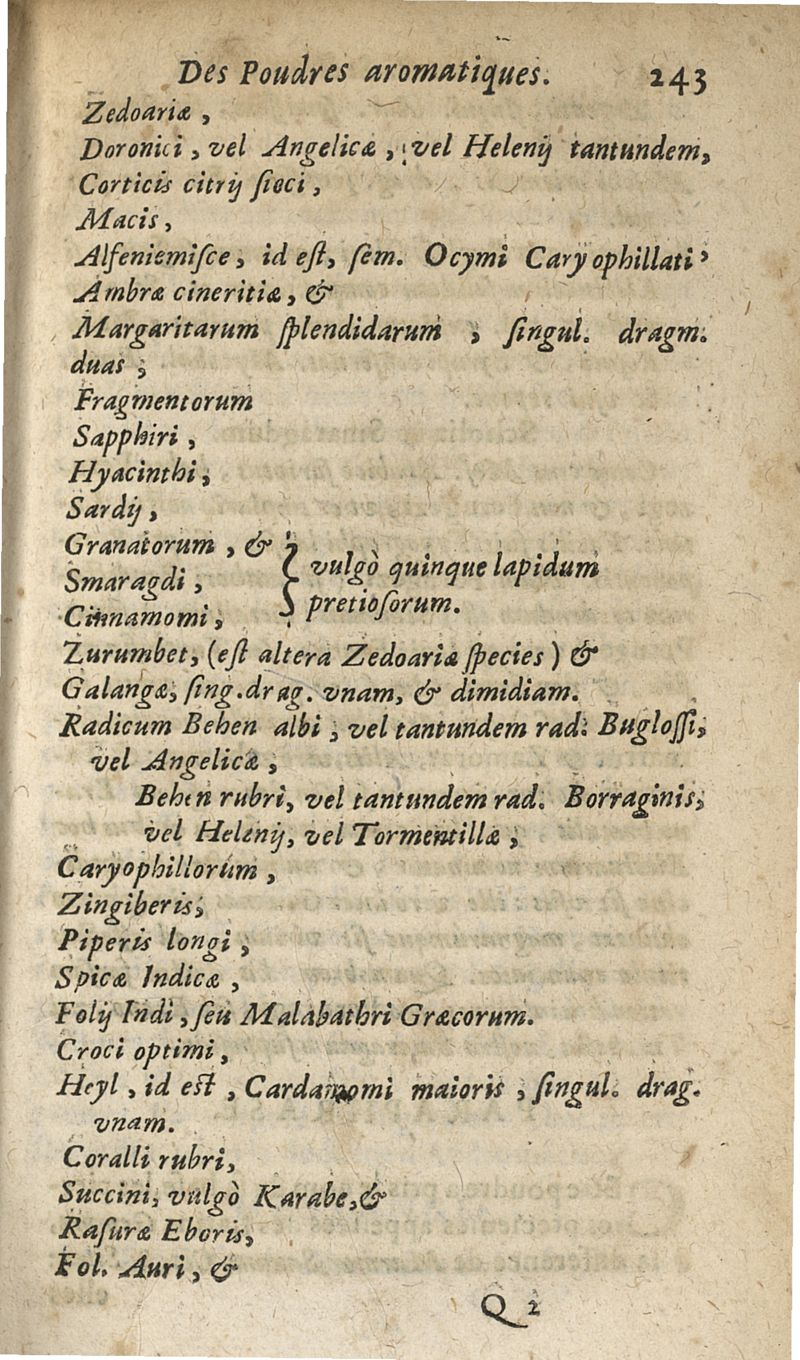 Des Poudres aromatiques. 243
Zedoariæ,
Doronici, vel Angelicæ, vel Helenij tantundem,
Corticis citrij sicci,
Macis,
Alfeniemisce, id est, sem. Ocymi Caryophillati,
Ambræ cineritiæ, &
Margaritarum splendidarum, singul. dragm.
duas;
Fragmentorum
Sapphiri,
Hyacinthi,
Sardij,
Granatorum, &
Smaragdi,
} vulgò quinque lapidum
pretiosorum.
Cinnamomi,
Zurumbet, (est altera Zedoariæ species) &
Galangæ, sing. drag. vnam, & dimidiam.
Radicum Behen albi, vel tantundem rad. Buglossi,
vel Angelicæ,
Behen rubri, vel tantundem rad. Borraginis,
vel Helenij, vel Tormentillæ,
Caryophillorum,
Zingiberis,
Piperis longi,
Spicæ Indicæ,
Folij Indi, seu Malabathri Græcorum.
Croci optimi,
Heyl, id est, Cardamomi maioris, singul. drag.
vnam.
Coralli rubri,
Succini, vulgò Karabe, &
Rasuræ Eboris,
Fol. Auri, &
Q 2